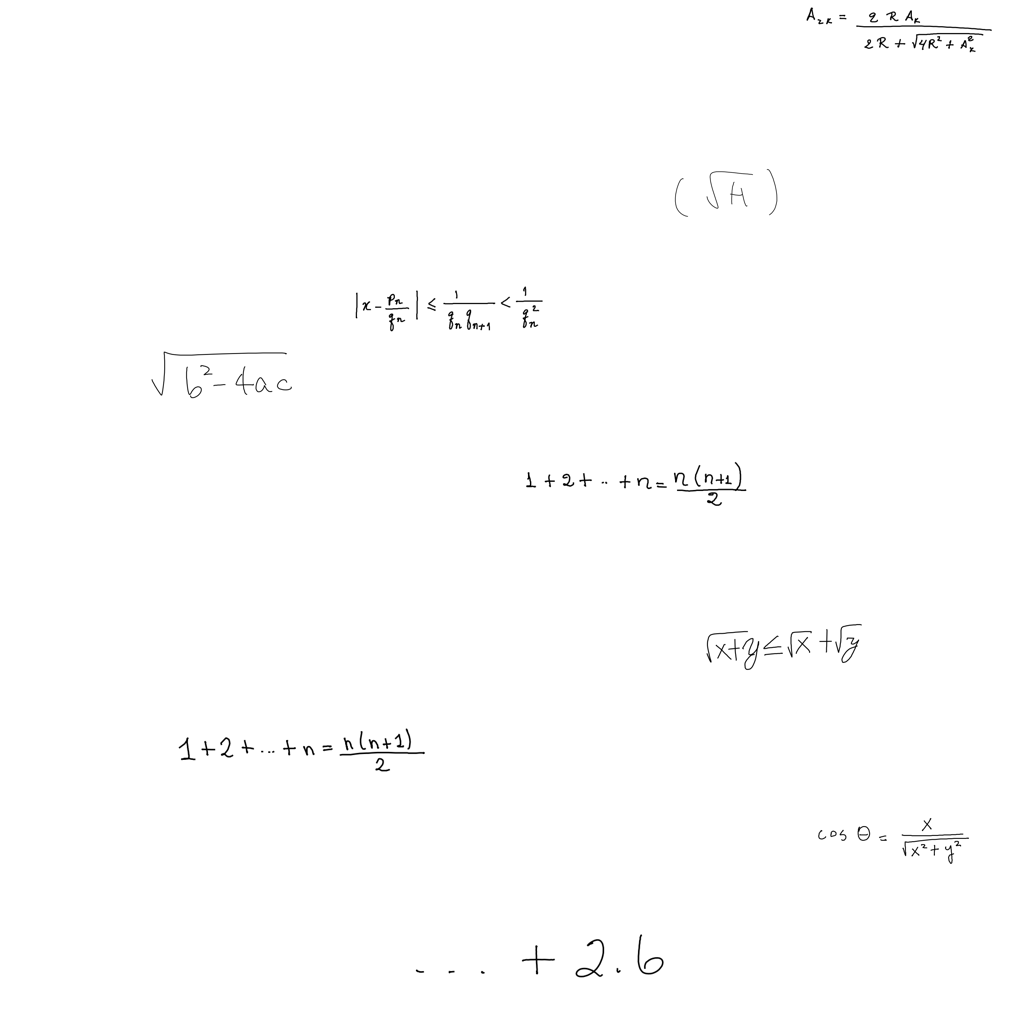 A_{2k} = \frac{2 R A_k}{2R + \sqrt{4R^2 + A_k^2}}
(\sqrt{H})
|x - \frac{p_n}{q_n}| \leq \frac{1}{q_n q_{n+1}} < \frac{1}{q_n^2}
\sqrt{b^2 - 4ac}
1 + 2 + .. + n = \frac{n(n+1)}{2}
\sqrt{x+y} \leq \sqrt{x} + \sqrt{y}
1 + 2 + ... + n = \frac{n(n+1)}{2}
cos θ = \frac{x}{\sqrt{x^2 + y^2}}
... + 2.6